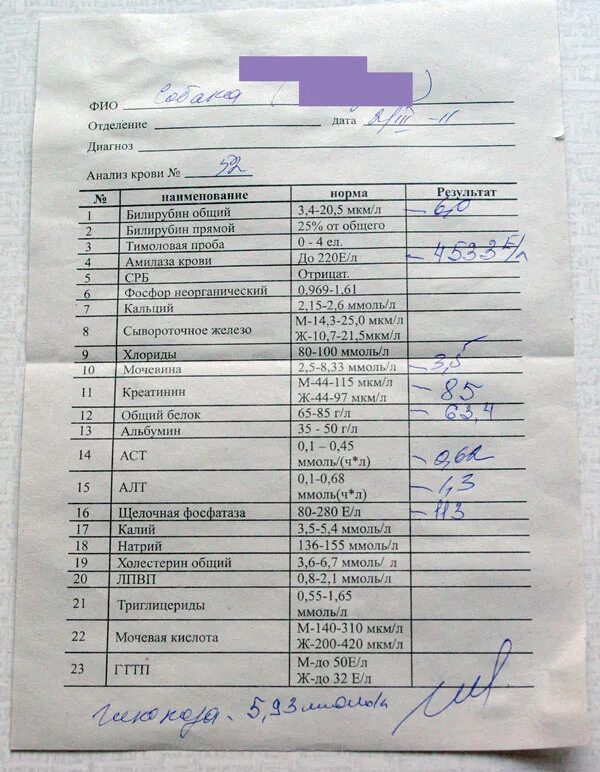 ФИО Собака (
Отделение дата 2/III-11
Диагноз
Анализ крови № 52
№ наименование норма Результат
1 Билирубин общий 3,4-20,5 мкм/л - 6,0
2 Билирубин прямой 25% от общего
3 Тимоловая проба 0 - 4 ел.
4 Амилаза крови До 220Е/л - 4533 Е/л
5 СРБ Отрицат.
6 Фосфор неорганический 0,969-1,61
7 Кальций 2,15-2,6 ммоль/л
8 Сывороточное железо М-14,3-25,0 мкм/л
Ж-10,7-21,5мкм/л
9 Хлориды 80-100 ммоль/л
10 Мочевина 2,5-8,33 ммоль/л - 3,5
11 Креатинин М-44-115 мкм/л
Ж-44-97 мкм/л - 85
12 Общий белок 65-85 г/л - 63,4
13 Альбумин 35 - 50 г/л
14 АСТ 0,1 – 0,45
ммоль/(ч*л) - 0,62
15 АЛТ 0,1-0,68
ммоль(ч*л) - 1,3
16 Щелочная фосфатаза 80-280 Е/л - 113
17 Калий 3,5-5,4 ммоль/л
18 Натрий 136-155 ммоль/л
19 Холестерин общий 3,6-6,7 ммоль/ л
20 ЛПВП 0,8-2,1 ммоль/л
21 Триглицериды 0,55-1,65
ммоль/л
22 Мочевая кислота М-140-310 мкм/л
Ж-200-420 мкм/л
23 ГГТП М-до 50Е/л
Ж-до 32 Е/л
глюкоза - 5,93 ммоль/л